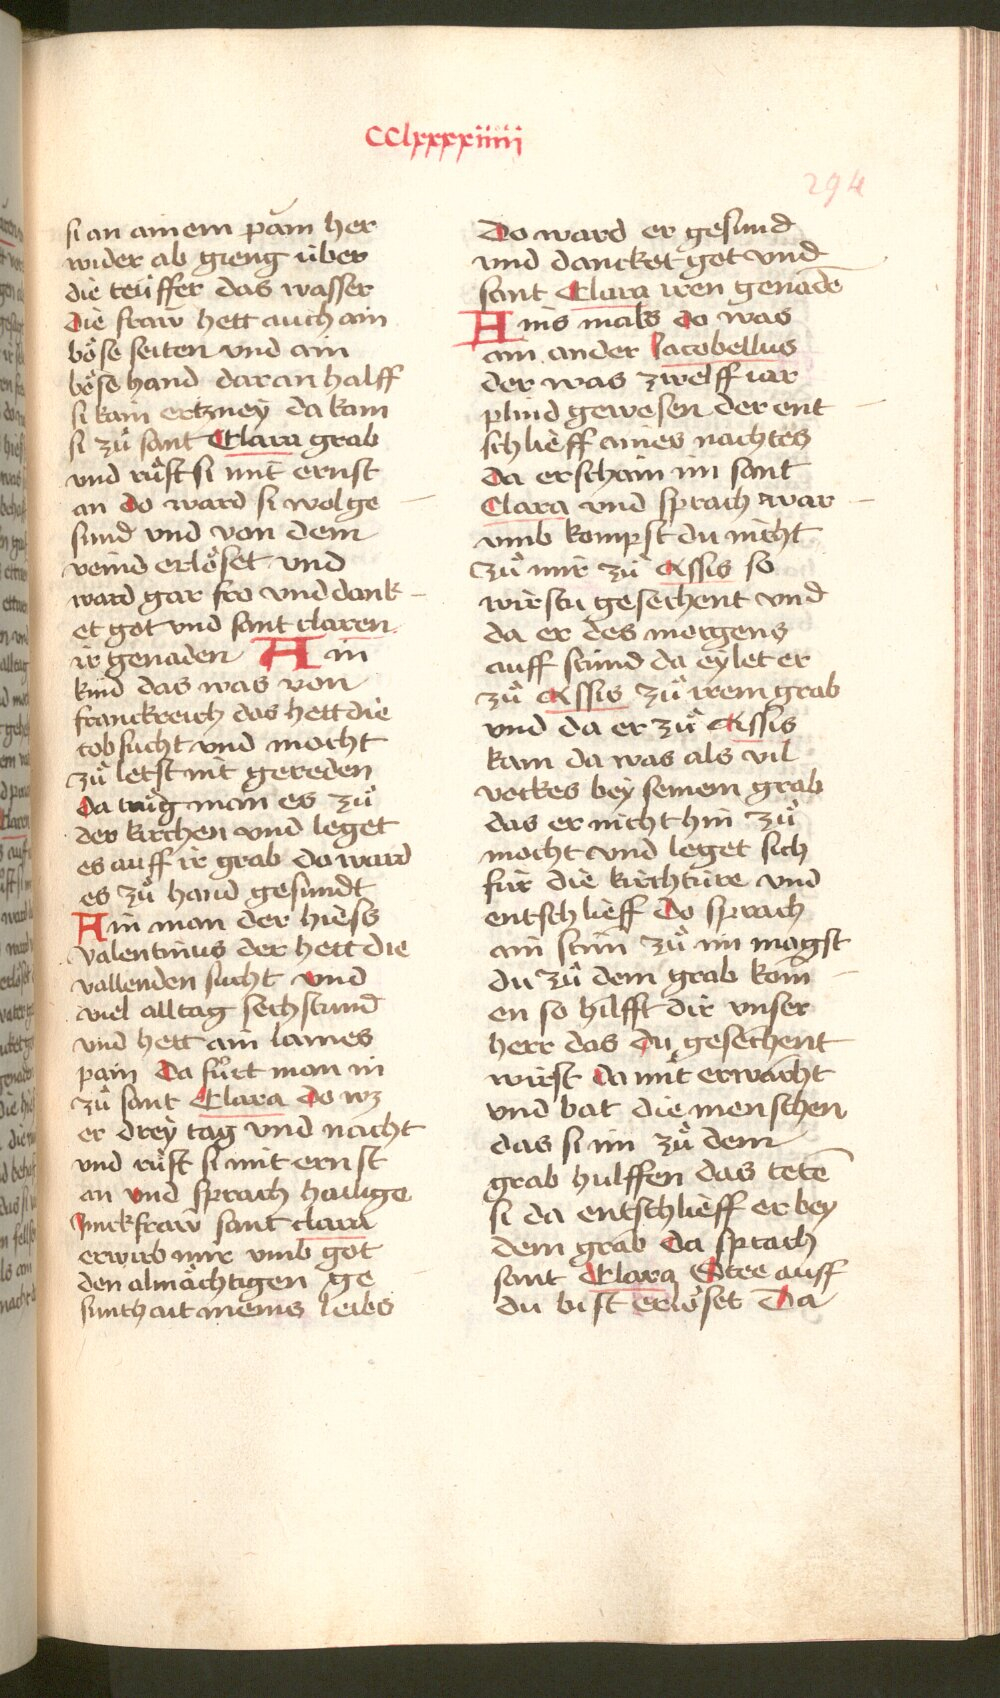 CClxxxxiiii
294
si an ainem pam her
wider ab gieng über
die teüffer das wasser
die fraw hett auch ain
böse seiten vnd ain
böse hand dar an halff
si kain ertzney da kam
si zů sant Clara grab
vnd růft si mit ernst
an do ward si wol ge
sund vnd von dem
veind erlöset vnd
ward gar fro vnd dank
et got vnd sant claren
ir genaden Ain
kind das was von
franckreich das hett die
tobsucht vnd mocht
zů letst nit gereden
da trůg man es zů
der kirchen vnd leget
es auff ir grab do ward
es zů hand gesundt
Ain man der hiess
valentinus der hett die
vallenden sucht vnd
viel alltag sechstund
vnd hett ain lames
pain da fůrt man in
zů sant Clara do wz
er drey tag vnd nacht
vnd růft si mit ernst
an vnd sprach hailige
junckfraw sant clara
erwirb mir vmb got
den almächtigen ge
sunthait meins leibs
Do ward er gesund
vnd dancket got vnd
sant Clara iren genadē
Ains mals do was
ain ander Jacobellus
der was zwelff iar
plind gewesen der ent
schlieff aines nachtes
da erschain im sant
Clara vnd sprach war
vmb kompst du nicht
zů mir zů Assis so
wirstu gesechent vnd
da er des morgens
auff stund da eylet er
zů Assis zů irem grab
vnd da er zů Assis
kam da was als vil
volckes bey seinem grab
das er nicht hin zů
mocht vnd leget sich
für die kirchtüre vnd
entschlieff do sprach
ain stim zů im magst
du zů dem grab kom̄
en so hilfft dir vnser
herr das du gesechent
wirst da mit erwacht
vnd bat die menschen
das si im zů dem
grab hulffen das tetē
si da entschlieff er bey
dem grab da sprach
sant Clara Stee auff
du bist erlöset Da